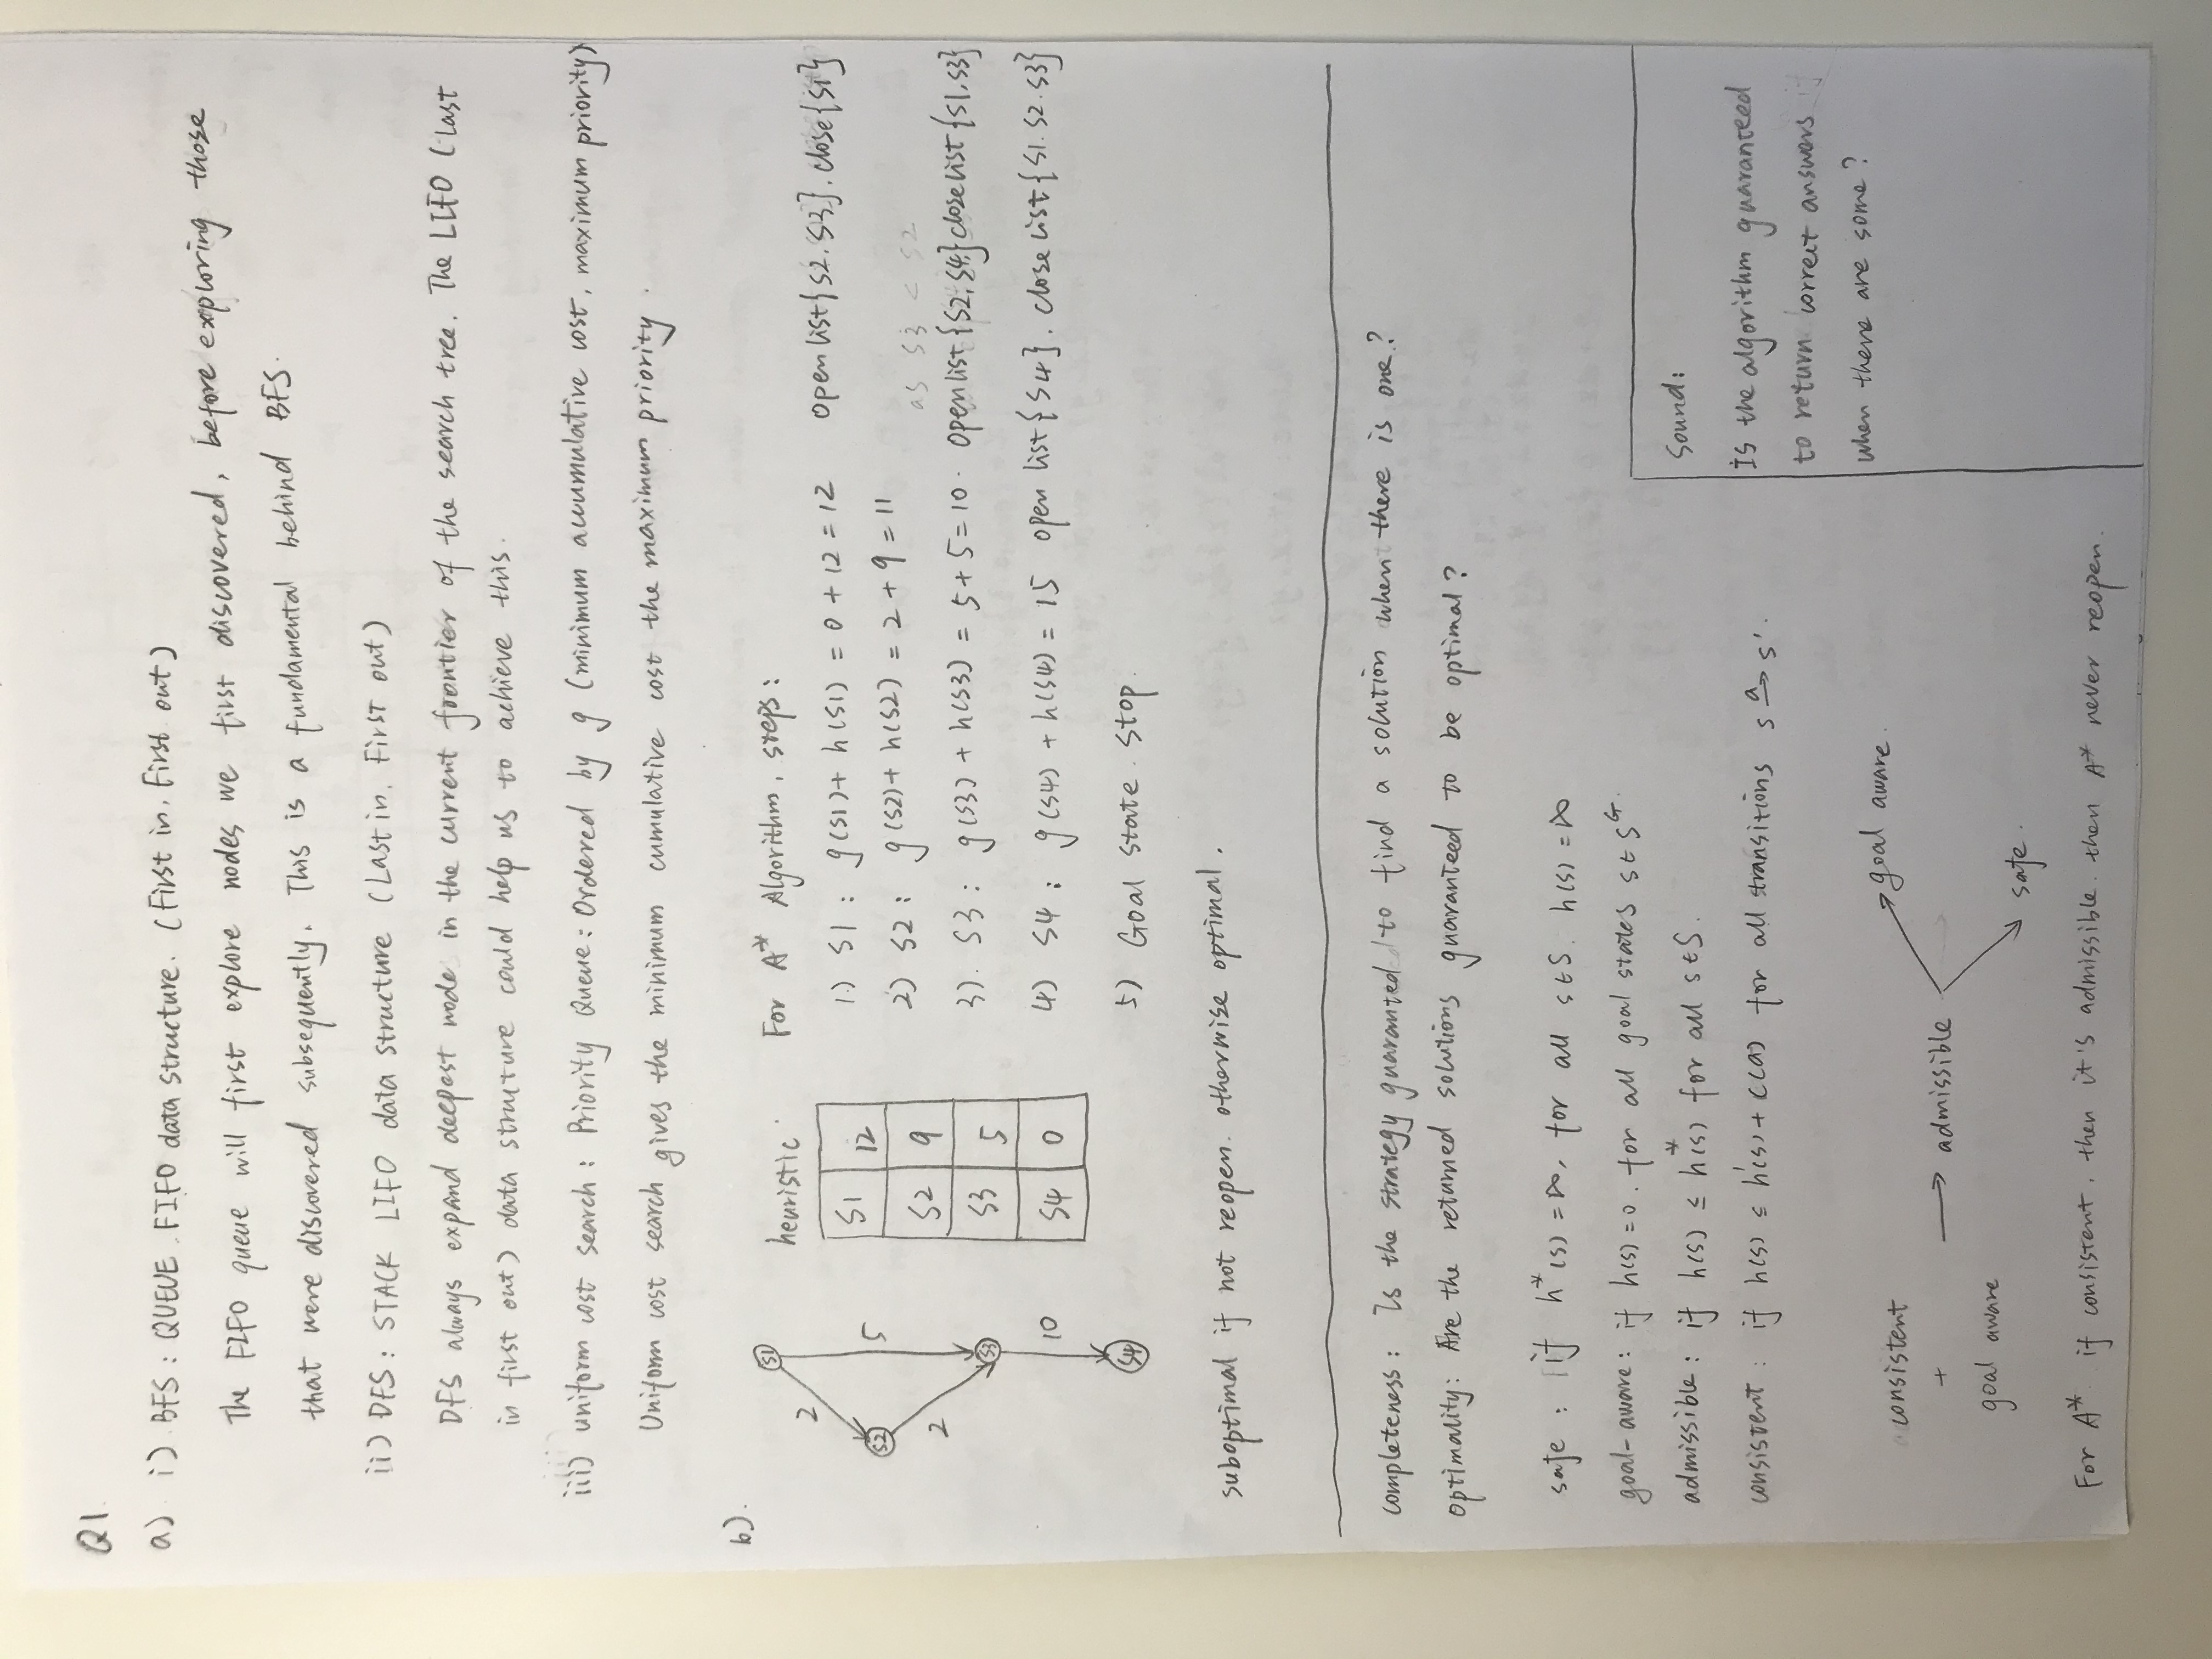 Q1.
a) i) BFS : QUEUE FIFO data structure. (First in, First out)
The FIFO queue will first explore nodes we first discovered, before exploring those
that were discovered subsequently. This is a fundamental behind BFS.
ii) DFS : STACK LIFO data structure (Last in, First out)
DFS always expand deepest node in the current frontier of the search tree. The LIFO (Last
in first out) data structure could help us to achieve this.
iii) uniform cost search : Priority Queue : Ordered by g (minimum accumulative cost, maximum priority)
Uniform cost search gives the minimum cumulative cost the maximum priority.
b).
S1
2
5
S2
2
S3
10
S4
heuristic
S1 12
S2 9
S3 5
S4 0
For A* Algorithm, steps:
1.) S1 : g(S1) + h(S1) = 0 + 12 = 12 open list{S2, S3}. close{S1}
2) S2 : g(S2) + h(S2) = 2 + 9 = 11
as S3 < S2
3). S3 : g(S3) + h(S3) = 5 + 5 = 10. open list {S2, S4} close list {S1, S3}
4) S4 : g(S4) + h(S4) = 15 open list {S4}. close list {S1. S2. S3}
5) Goal state. Stop.
suboptimal if not reopen. otherwise optimal.
completeness : Is the strategy guaranted to find a solution when there is one?
optimality: Are the returned solutions guaranteed to be optimal?
safe : if h*(s) = ∞, for all s∈S. h(s) = ∞
goal-aware : if h(s) = 0. for all goal states s∈S^G.
admissible : if h(s) ≤ h*(s) for all s∈S.
consistent : if h(s) ≤ h'(s) + c(a) for all transitions s -a-> s'.
Sound:
Is the algorithm guaranteed
to return correct answers
when there are some?
consistent
+
goal aware
→ admissible
goal aware.
safe.
For A* if consistent, then it's admissible. then A* never reopen.